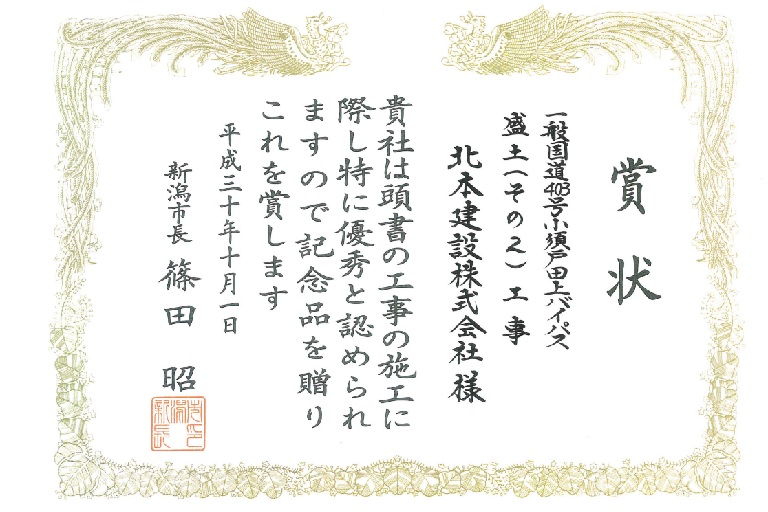 賞状
一般国道403号小須戸田上バイパス
盛土(その2)工事
北本建設株式会社様
貴社は頭書の工事の施工に
際し特に優秀と認められ
ますので記念品を贈り
これを賞します
平成三十年十月一日
新潟市長 篠田昭
新潟市長之印